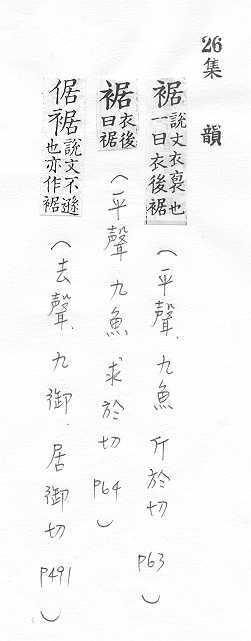 26集 韻
裾 說文衣裒也一曰衣後裾(平聲.九魚 斤於切 P63)
裾 衣後曰裾(平聲 九魚 求於切 P64)
倨裾 說文不遜也亦作裾(去聲.九御.居御切 P491)